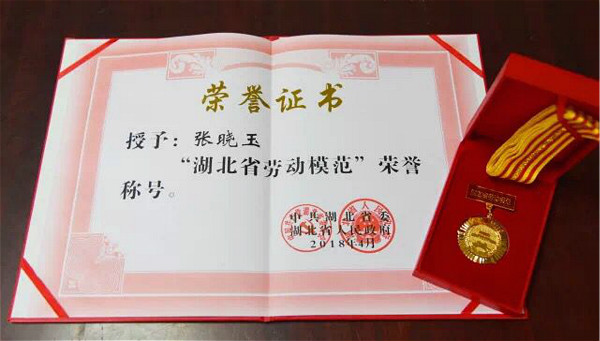 荣誉证书
授予：张晓玉
“湖北省劳动模范”荣誉
称号。
中共湖北省委
湖北省人民政府
2018年4月